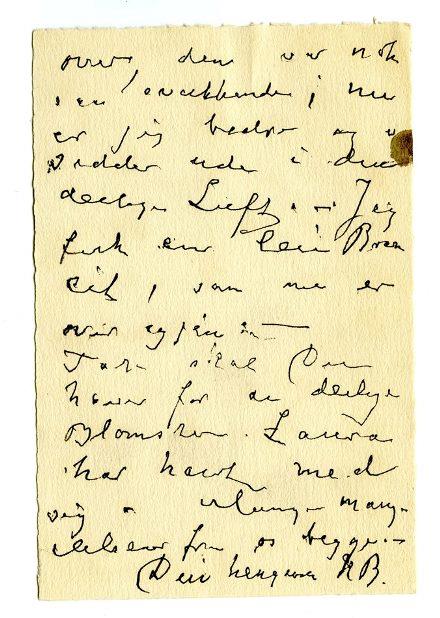 over, den var nok
svækkende; nu
er jeg bedre og
sidder ude i den
deilige Luft. — Jeg
fik en lei Bron
cit, som nu er
over
Tak skal Du
have for de deilige
Blomster. Laura
har havt med
sig
hilsener fra os begge. —
Din hengivne NB.